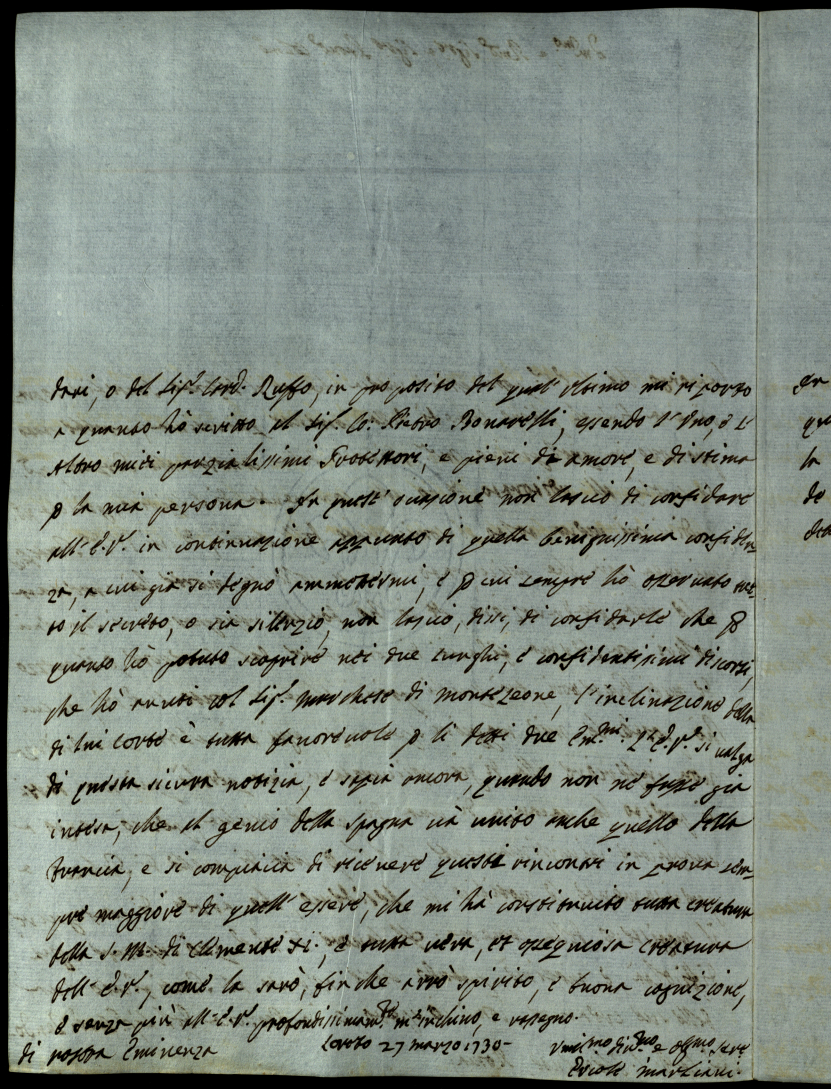 dari, o del Sig.r Card. Ruffo, in proposito del quale ultimo mi riporto
a quanto hò scritto al Sig. Co: Pietro Bonarelli, essendo l'uno, e l'
Altro miei parzialissimi Protettori, e pieni di amore, e di stima
p la mia persona. In quest' occasione non lascio di confidare
all' E.V. in continuazione appunto di quella benignissima confiden
za, a cui già si degnò ammettermi, e p cui sempre hò osservato tut
to il secreto, o sia silenzio, non lascio, dissi, di confidarle che p
quanto hò potuto scoprire nei due lunghi, e confidentissimi discorsi,
che hò avuti col Sig.r Marchese di Monteleone, l'inclinazione della
di lui Corte è tutta favorevole p li detti due Em.mi. L'E.V. si valga
di questa sicura notizia, e sapia ancora, quando non ne fusse già
intesa, che al genio della Spagna và unito anche quello della
Francia, e si compiaccia di ricevere questi rincontri in prova sem
pre maggiore di quell' essere, che mi hà constituito tutta creatura
della S. M. di Clemente XI., e tutta vera, et ossequiosa creatura
dell' E.V., come la sarò, finche avrò spirito, e buona cognizione,
e senza più all' E.V. profondissimam.te m'inchino, e rassegno.
di Vostra Eminenza
Loreto 27 marzo 1730-
Umil.mo Div.mo e Obl.mo Serv.e
Ercole Marliani.